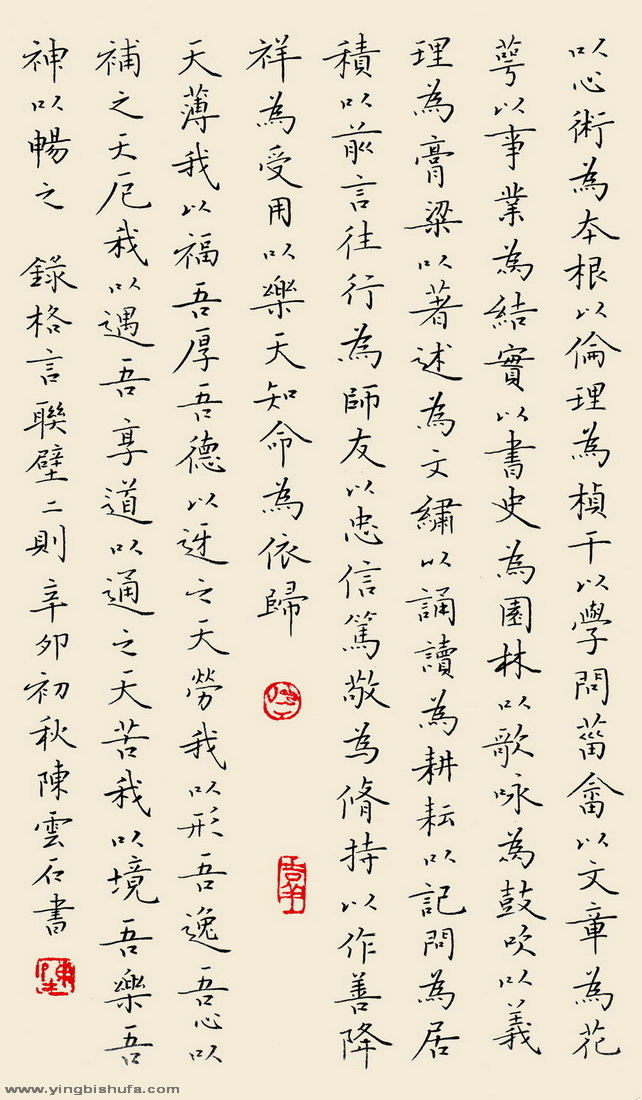 以心術為本根以倫理為楨干以學問菑畲以文章為花
萼以事業為結實以書史為園林以歌咏為鼓吹以義
理為膏粱以著述為文繡以誦讀為耕耘以記問為居
積以前言往行為師友以忠信篤敬為脩持以作善降
祥為受用以樂天知命為依歸
天薄我以福吾厚吾德以迓之天勞我以形吾逸吾心以
補之天厄我以遇吾享道以通之天苦我以境吾樂吾
神以暢之 錄格言聯璧二則辛卯初秋陳雲石書
www.yingbishufa.com